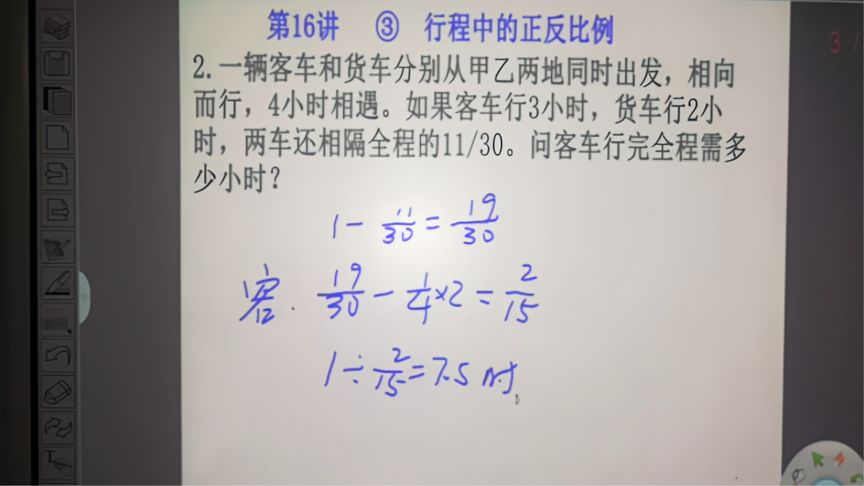 第16讲 ③ 行程中的正反比例
2.一辆客车和货车分别从甲乙两地同时出发，相向
而行，4小时相遇。如果客车行3小时，货车行2小
时，两车还相隔全程的11/30。问客车行完全程需多
少小时？
1-11/30=19/30
客. 19/30-1/4×2=2/15
1÷2/15=7.5时
T